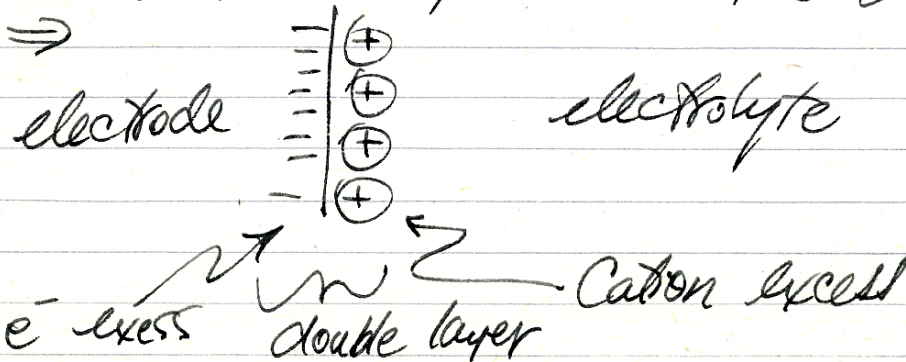 ⇒
electrode electrolyte
+
+
+
+
e⁻ exess double layer Cation excess